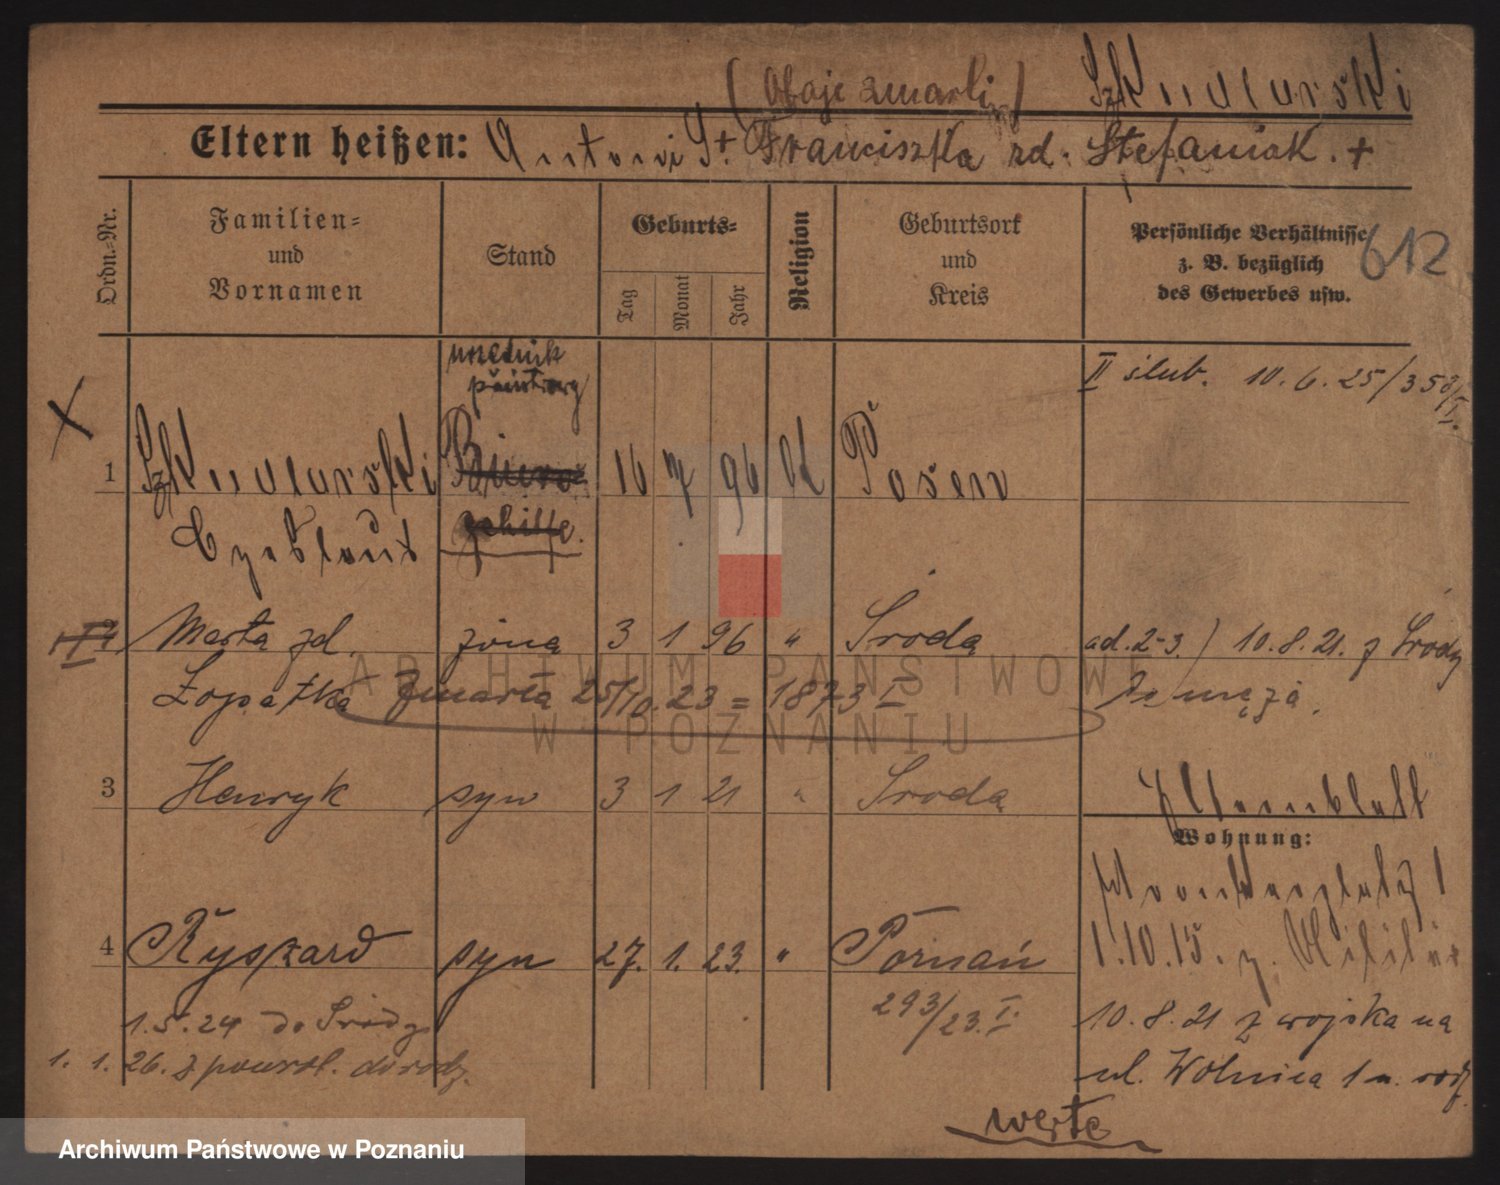 (Oboje zmarli) Szkudlarski
Eltern heißen: Antoni S. †. Franciszka zd. Stefaniak. +
Ordn.-Nr.
Familien- und Vornamen
Stand
Geburts-
Tag
Monat
Jahr
Religion
Geburtsort und Kreis
Persönliche Verhältnisse
z. B. bezüglich
des Gewerbes usw.
612
urzędnik
państwowy
II ślub. 10.6.25/358/I.
1 Szkudlarski Büro- 16 7 96 K Posen
Czeslaus gehilfe.
2 Marta zd. żona 3 1 96 " Środa ad. 2-3.) 10.8.21. z Środy
Łopatka Zmarła 25/10.23 = 1873 I do męża.
3 Henryk syn 3 1 21 " Środa
z Elternblatt
Wohnung:
4 Ryszard syn 27. 1. 23. " Poznań
1.10.15. z. Militär
1.5.24 do Środy 293/23.I. 10.8.21 z wojska na
1.1.26. z powrot. do rodz. ul. Wolnica 1 u. rodz.
werte
ARCHIWUM PAŃSTWOWE
W POZNANIU
Archiwum Państwowe w Poznaniu